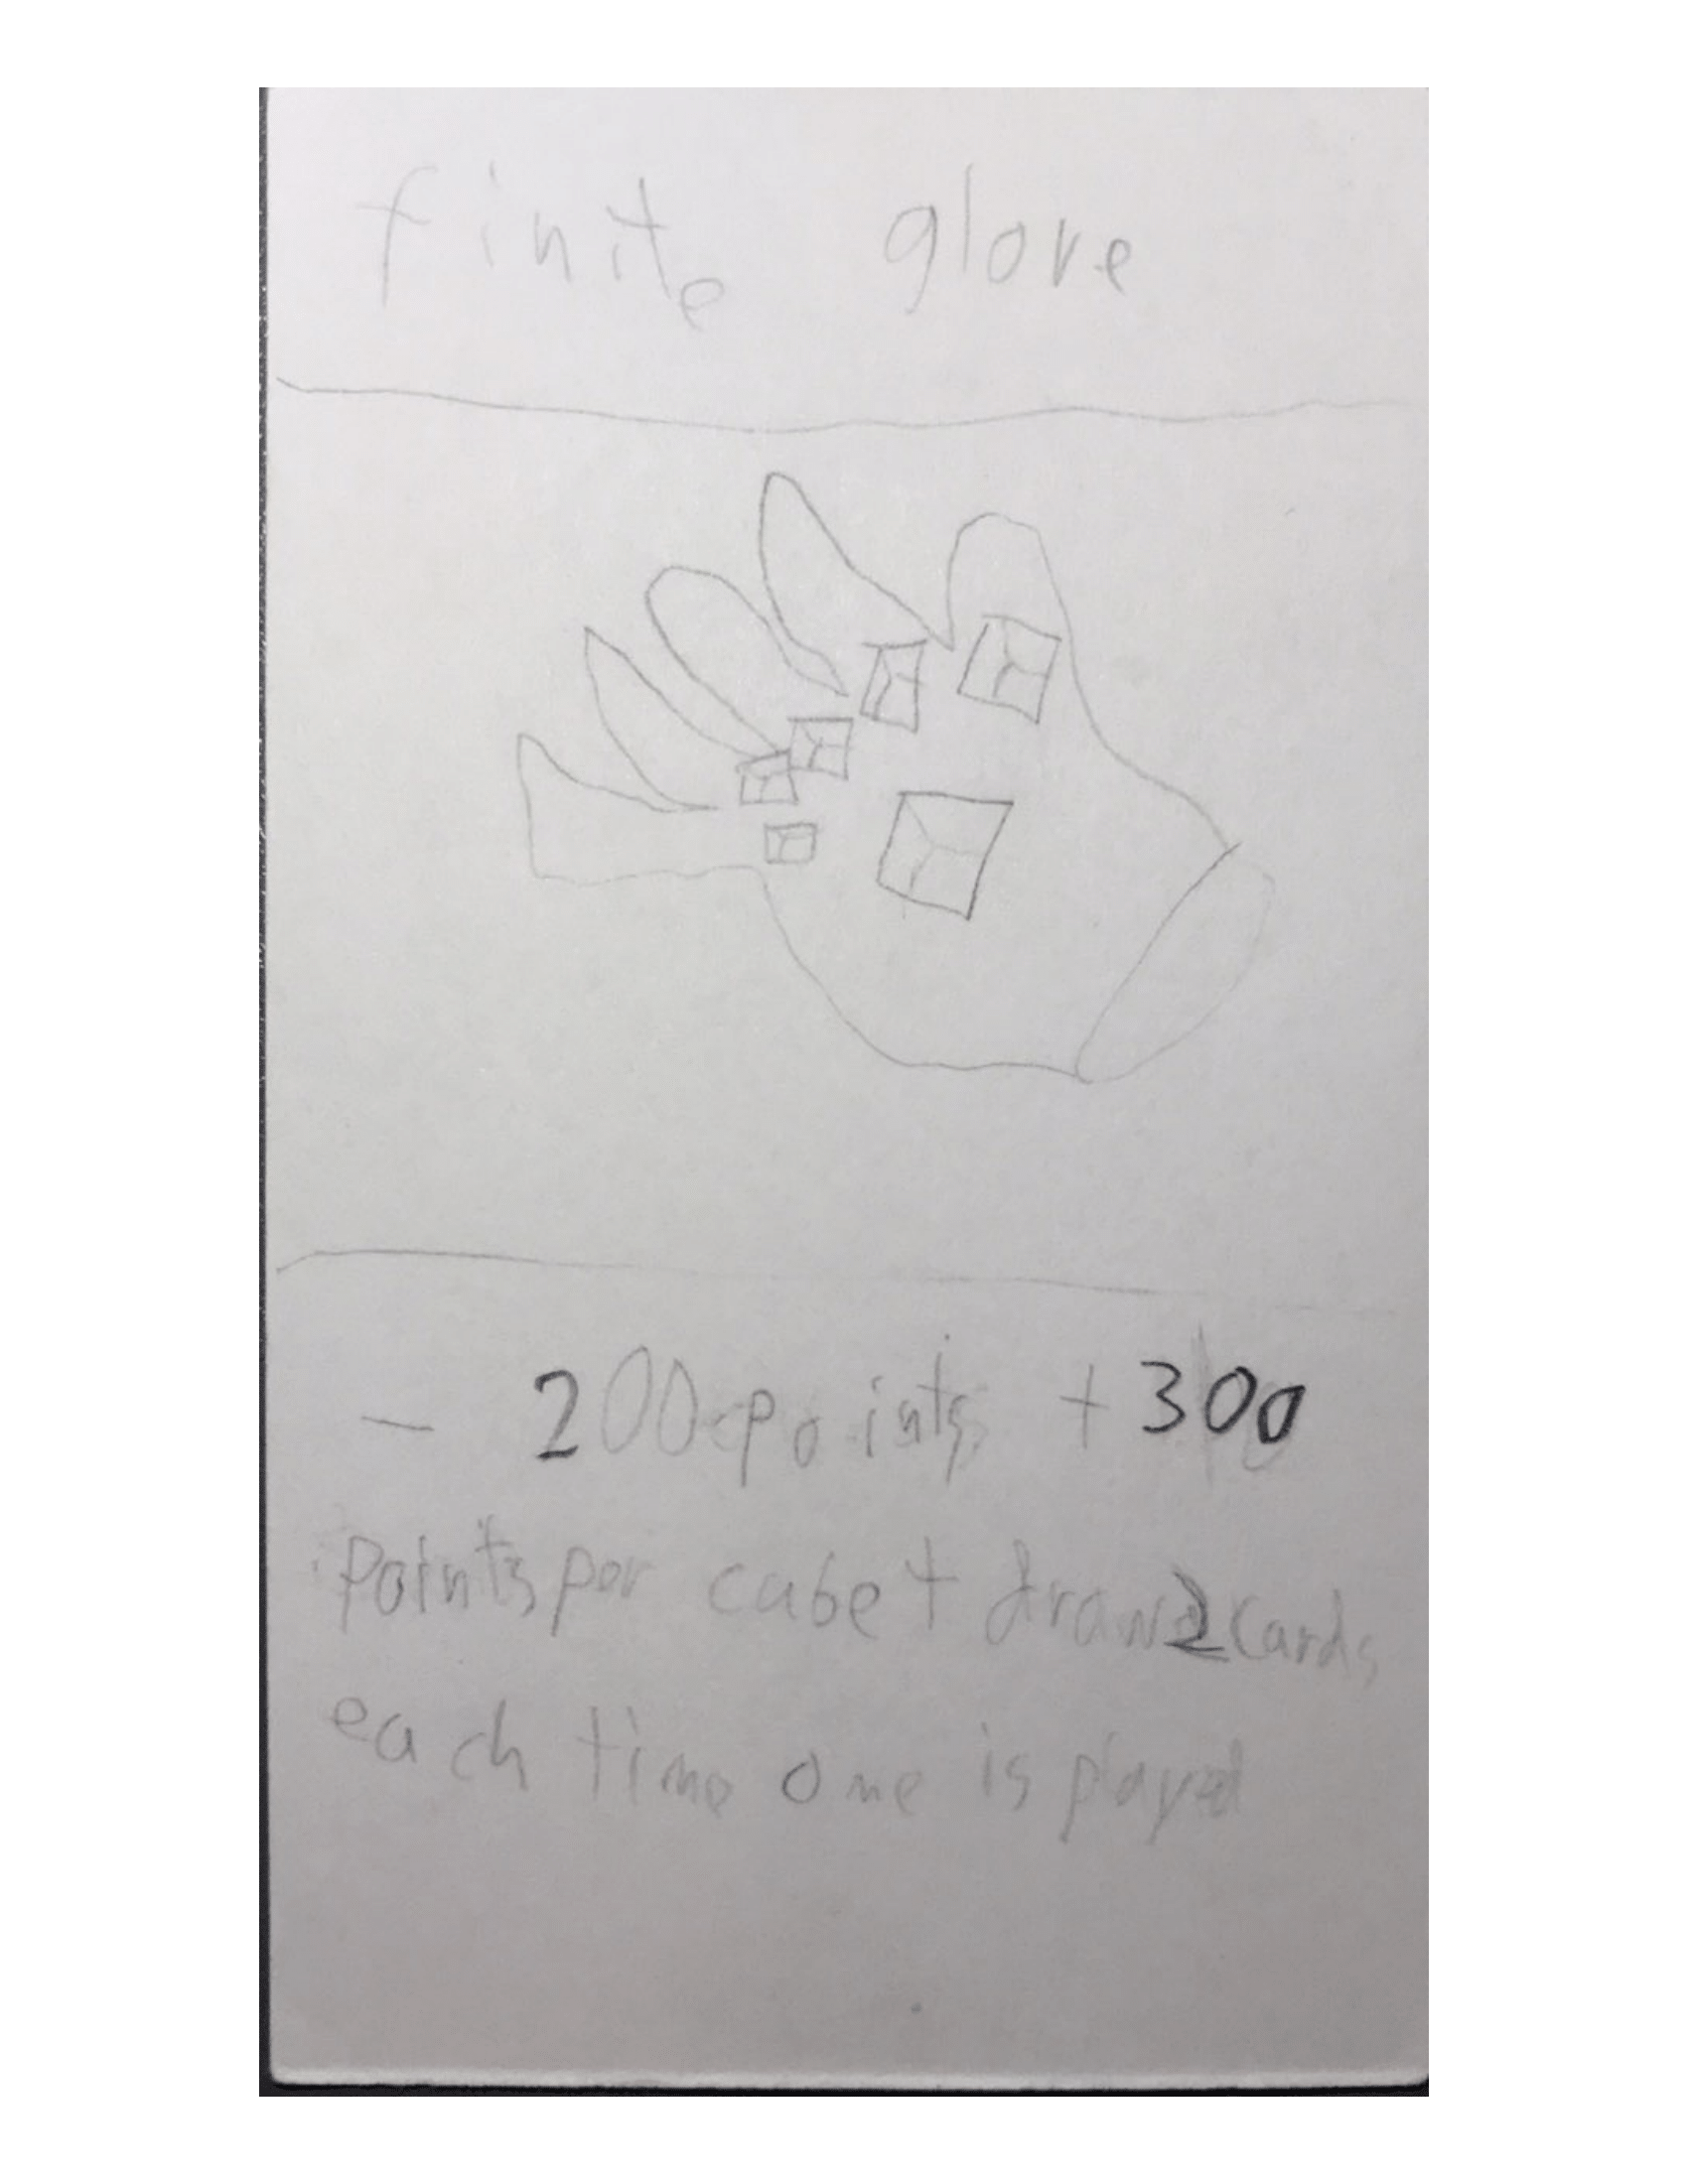 finite glove
- 200 points +300
points per cube + draw 2 cards
each time one is played